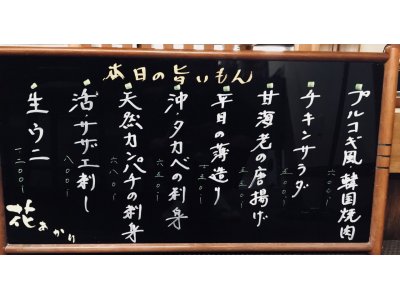 本日の旨いもん
プルコギ風 韓国焼肉
六〇〇ー
チキンサラダ
五〇〇ー
甘海老の唐揚げ
五五〇ー
平目の薄造り
沖・タカベの刺身
六五〇ー
天然カンパチの刺身
六八〇ー
活・サザエ刺し
八〇〇ー
生ウニ
花あかり